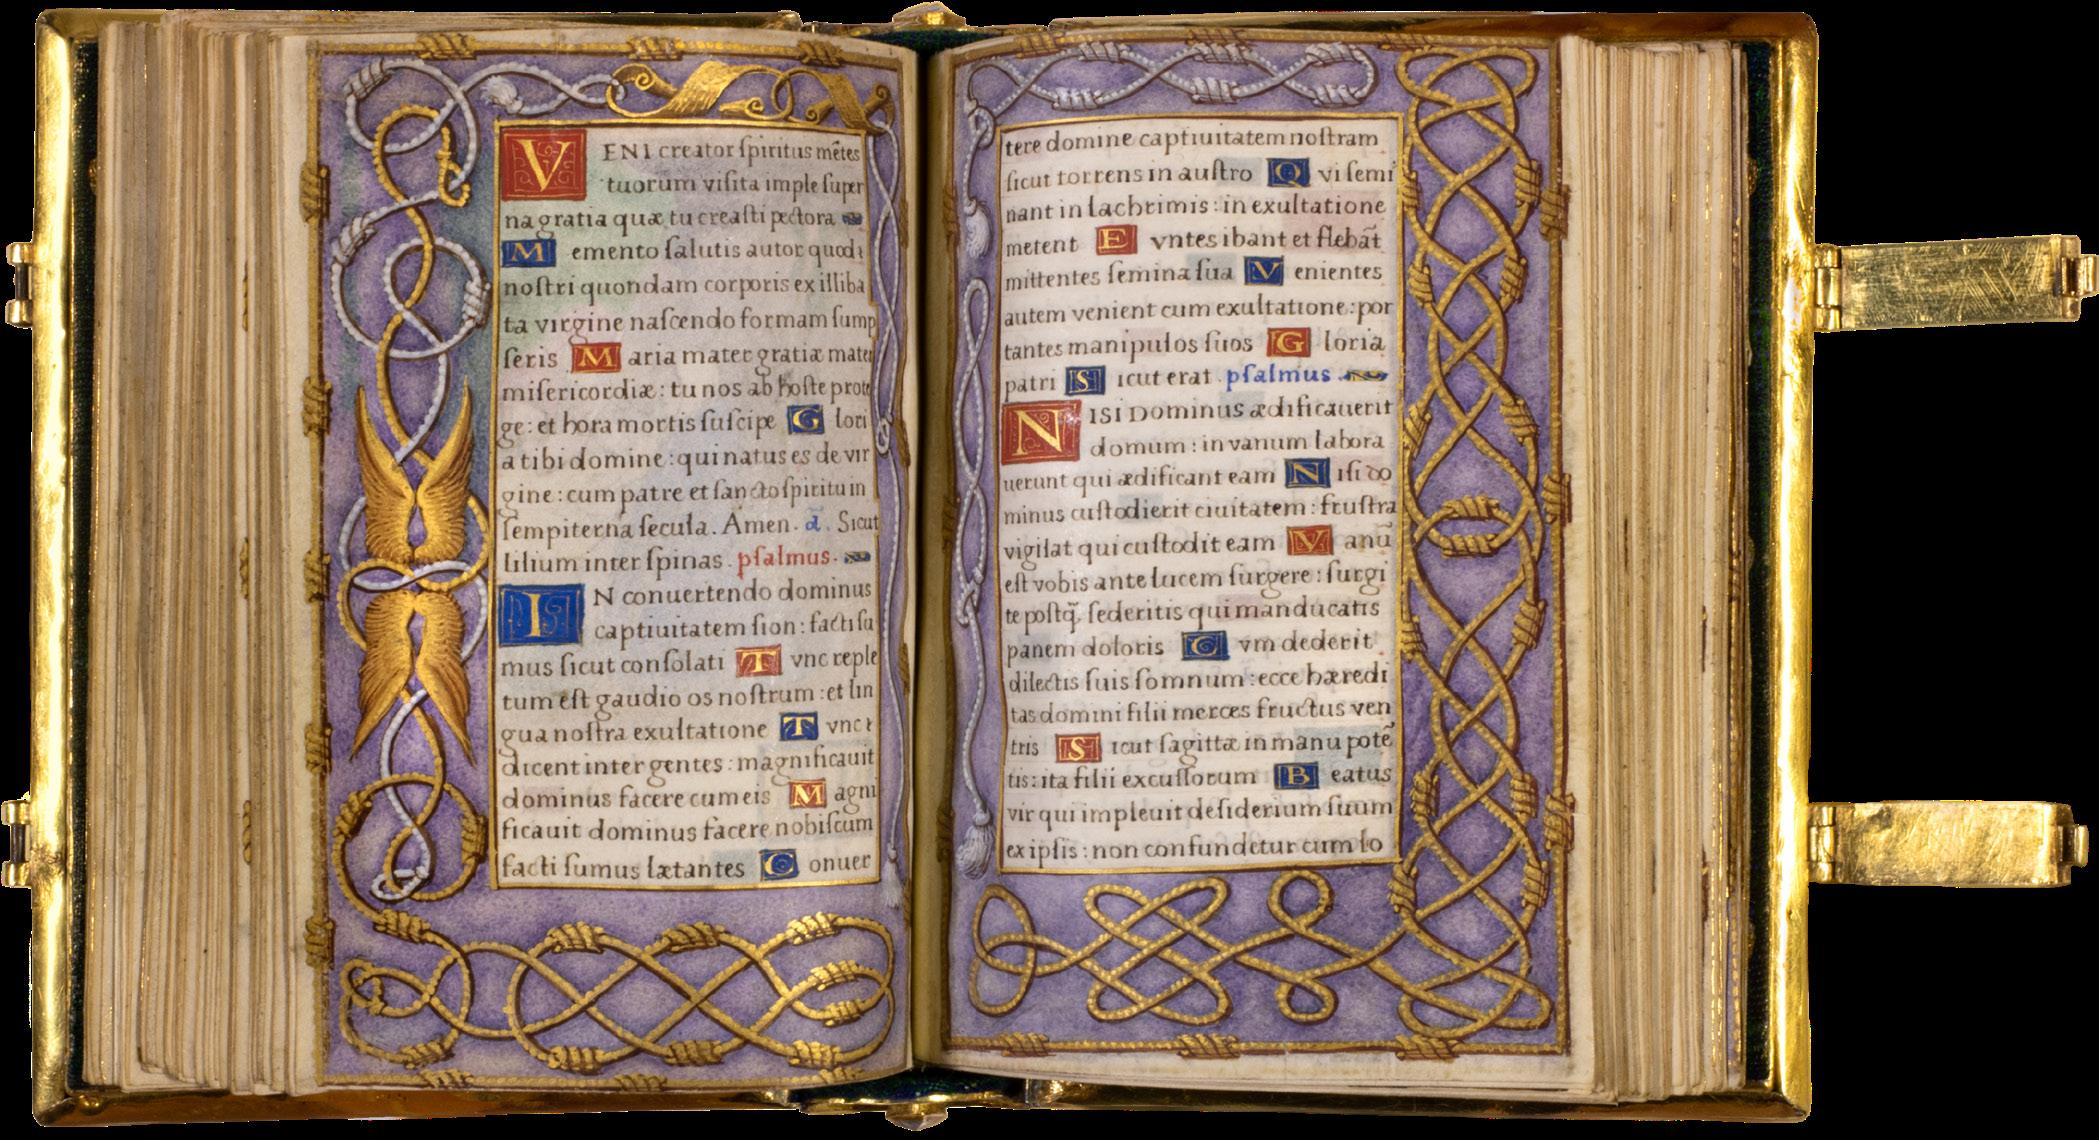 VENI creator ſpiritus mẽtes
tuorum viſita imple ſuper
na gratia quæ tu creaſti pectora
Memento ſalutis autor quod
noſtri quondam corporis ex illiba
ta virgine naſcendo formam ſump
ſeris Maria mater gratiæ mater
miſericordiæ : tu nos ab hoſte prote
ge : et hora mortis ſuſcipe Glori
a tibi domine : qui natus es de vir
gine : cum patre et ſancto ſpiritu in
ſempiterna ſecula. Amen. a͞. Sicut
lilium inter ſpinas. pſalmus.
IN conuertendo dominus
captiuitatem ſion : facti ſu
mus ſicut conſolati Tvnc reple
tum eſt gaudio os noſtrum : et lin
gua noſtra exultatione Tvnc
dicent inter gentes : magnificauit
dominus facere cum eis Magni
ficauit dominus facere nobiſcum
facti ſumus lætantes Conuer
tere domine captiuitatem noſtram
ſicut torrens in auſtro Qvi ſemi
nant in lachrimis : in exultatione
metent Evntes ibant et flebãt
mittentes ſemina ſua Venientes
autem venient cum exultatione : por
tantes manipulos ſuos Gloria
patri Sicut erat. pſalmus.
NISI Dominus ædificauerit
domum : in vanum labora
uerunt qui ædificant eam Niſi do
minus cuſtodierit ciuitatem : fruſtra
vigilat qui cuſtodit eam Vanũ
eſt vobis ante lucem ſurgere : ſurgi
te poſtq̃. ſederitis qui manducatis
panem doloris Cvm dederit
dilectis ſuis ſomnum : ecce hæredi
tas domini filii merces fructus ven
tris Sicut ſagittæ in manu potẽ
tis : ita filii excuſſorum Beatus
vir qui impleuit deſiderium ſuum
ex ipſis : non confundetur cum lo